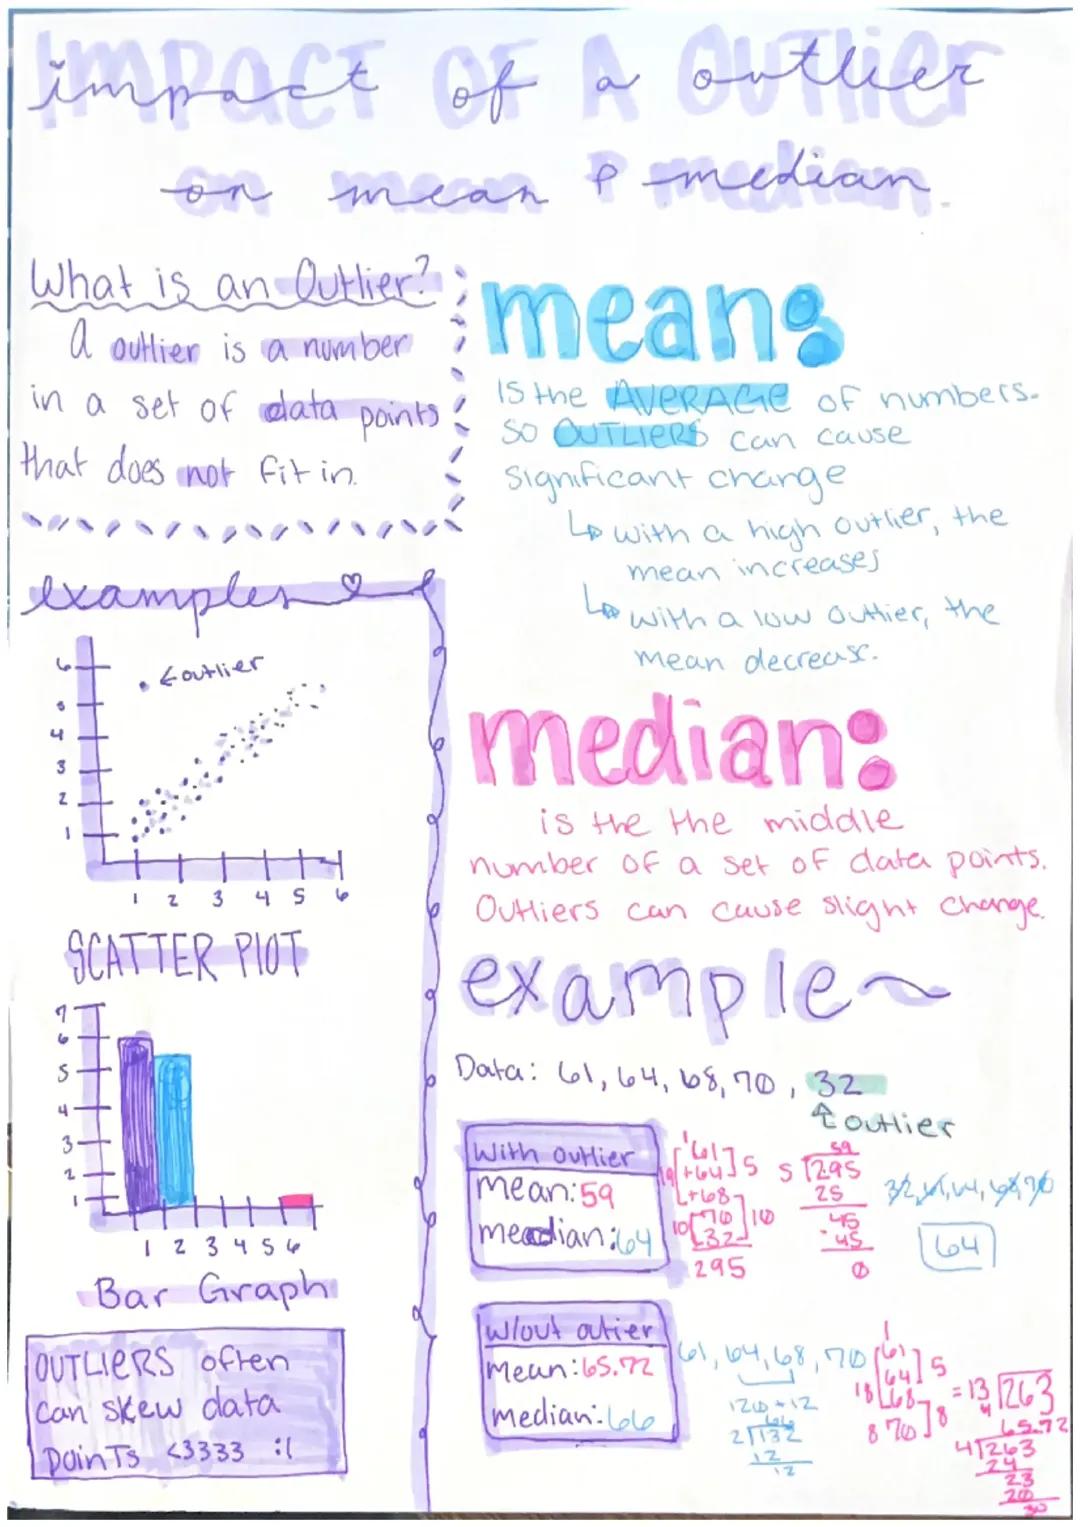 impact of a outlier
on mean & median.
What is an Outlier?
A outlier is a number
in a set of data points
that does not fit in.
mean:
Is the AVERAGE of numbers.
so OUTLIERS can cause
significant change
↳ with a high outlier, the
mean increases
↳ with a low outlier, the
mean decrease.
examples
6
5
4
3
2
1
←outlier
1 2 3 4 5 6
SCATTER PlOT
median:
is the the middle
number of a set of data points.
Outliers can cause slight change.
7
6
5
4
3
2
1
1 2 3 4 5 6
Bar Graph
OUTLIERS often
can skew data
poinTs <3333 :(
example~
Data: 61, 64, 68, 70, 32
↑ outlier
With outlier
mean: 59
meadian: 64
1
61
+64
+68
70
32
295
19
5
10
10
59
5 295
25
45
-45
0
32, 61, 64, 68, 70
64
w/out outier
mean: 65.72
median: 66
61, 64, 68, 70
120+12
66
2 132
12
12
1
61
64
68
70
18
5
8
8
=13
4
263
65.72
4 263
24
23
20
30